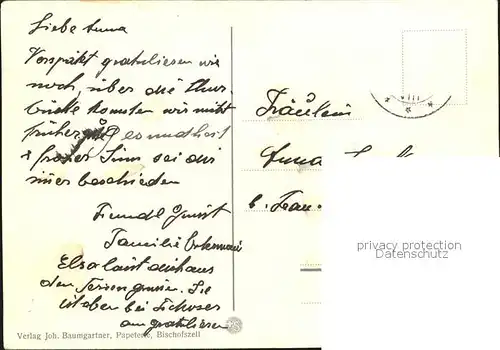 Liebe Anna
Verspätet gratulieren wir
noch, über die Thur-
brücke konnten wir nicht
früher. Gesundheit
& froher Sinn sei dir
immer beschieden
Freundl. Grüsst
Familie
Elsa lässt dich aus
den Ferien grüssen. Sie
ist eben bei
am gratulieren
Verlag Joh. Baumgartner, Papeterie, Bischofszell
VIII
Fräulein
Anna
b. Frau
privacy protection
Datenschutz